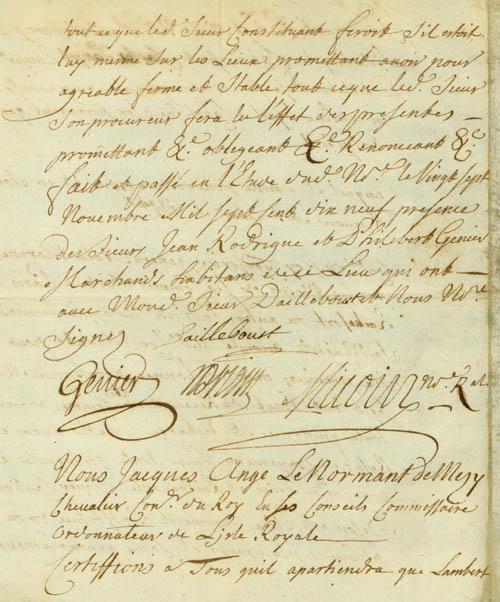 tout ce que led. Sieur Constituant feroit S'il estoit
luy meme sur les Lieux promettant avoir pour
agreable ferme et Stable tout ceque led. Sieur
Son procureur fera a l'effet des presentes
promettant &c. obligeant &c. Renonceant &c.
fait et passé en l'Etude dud. No.re le Vingt sept
Novembre Mil Sept Cent dix neuf presence
des Sieurs Jean Rodrigue et Philebert Genier
Marchands habitans de ce Lieu qui ont
avec Mond. Sieur Dailleboust et Nous No.re
Signé Dailleboust
Genier No.re R.al
Nous Jacques Ange Le Normant de Mesy
Chevalier Con.er du Roy En ses Conseils Commissaire
ordonnateur de Lisle Royale
Certiffions a Tous quil apartiendra que Lambert